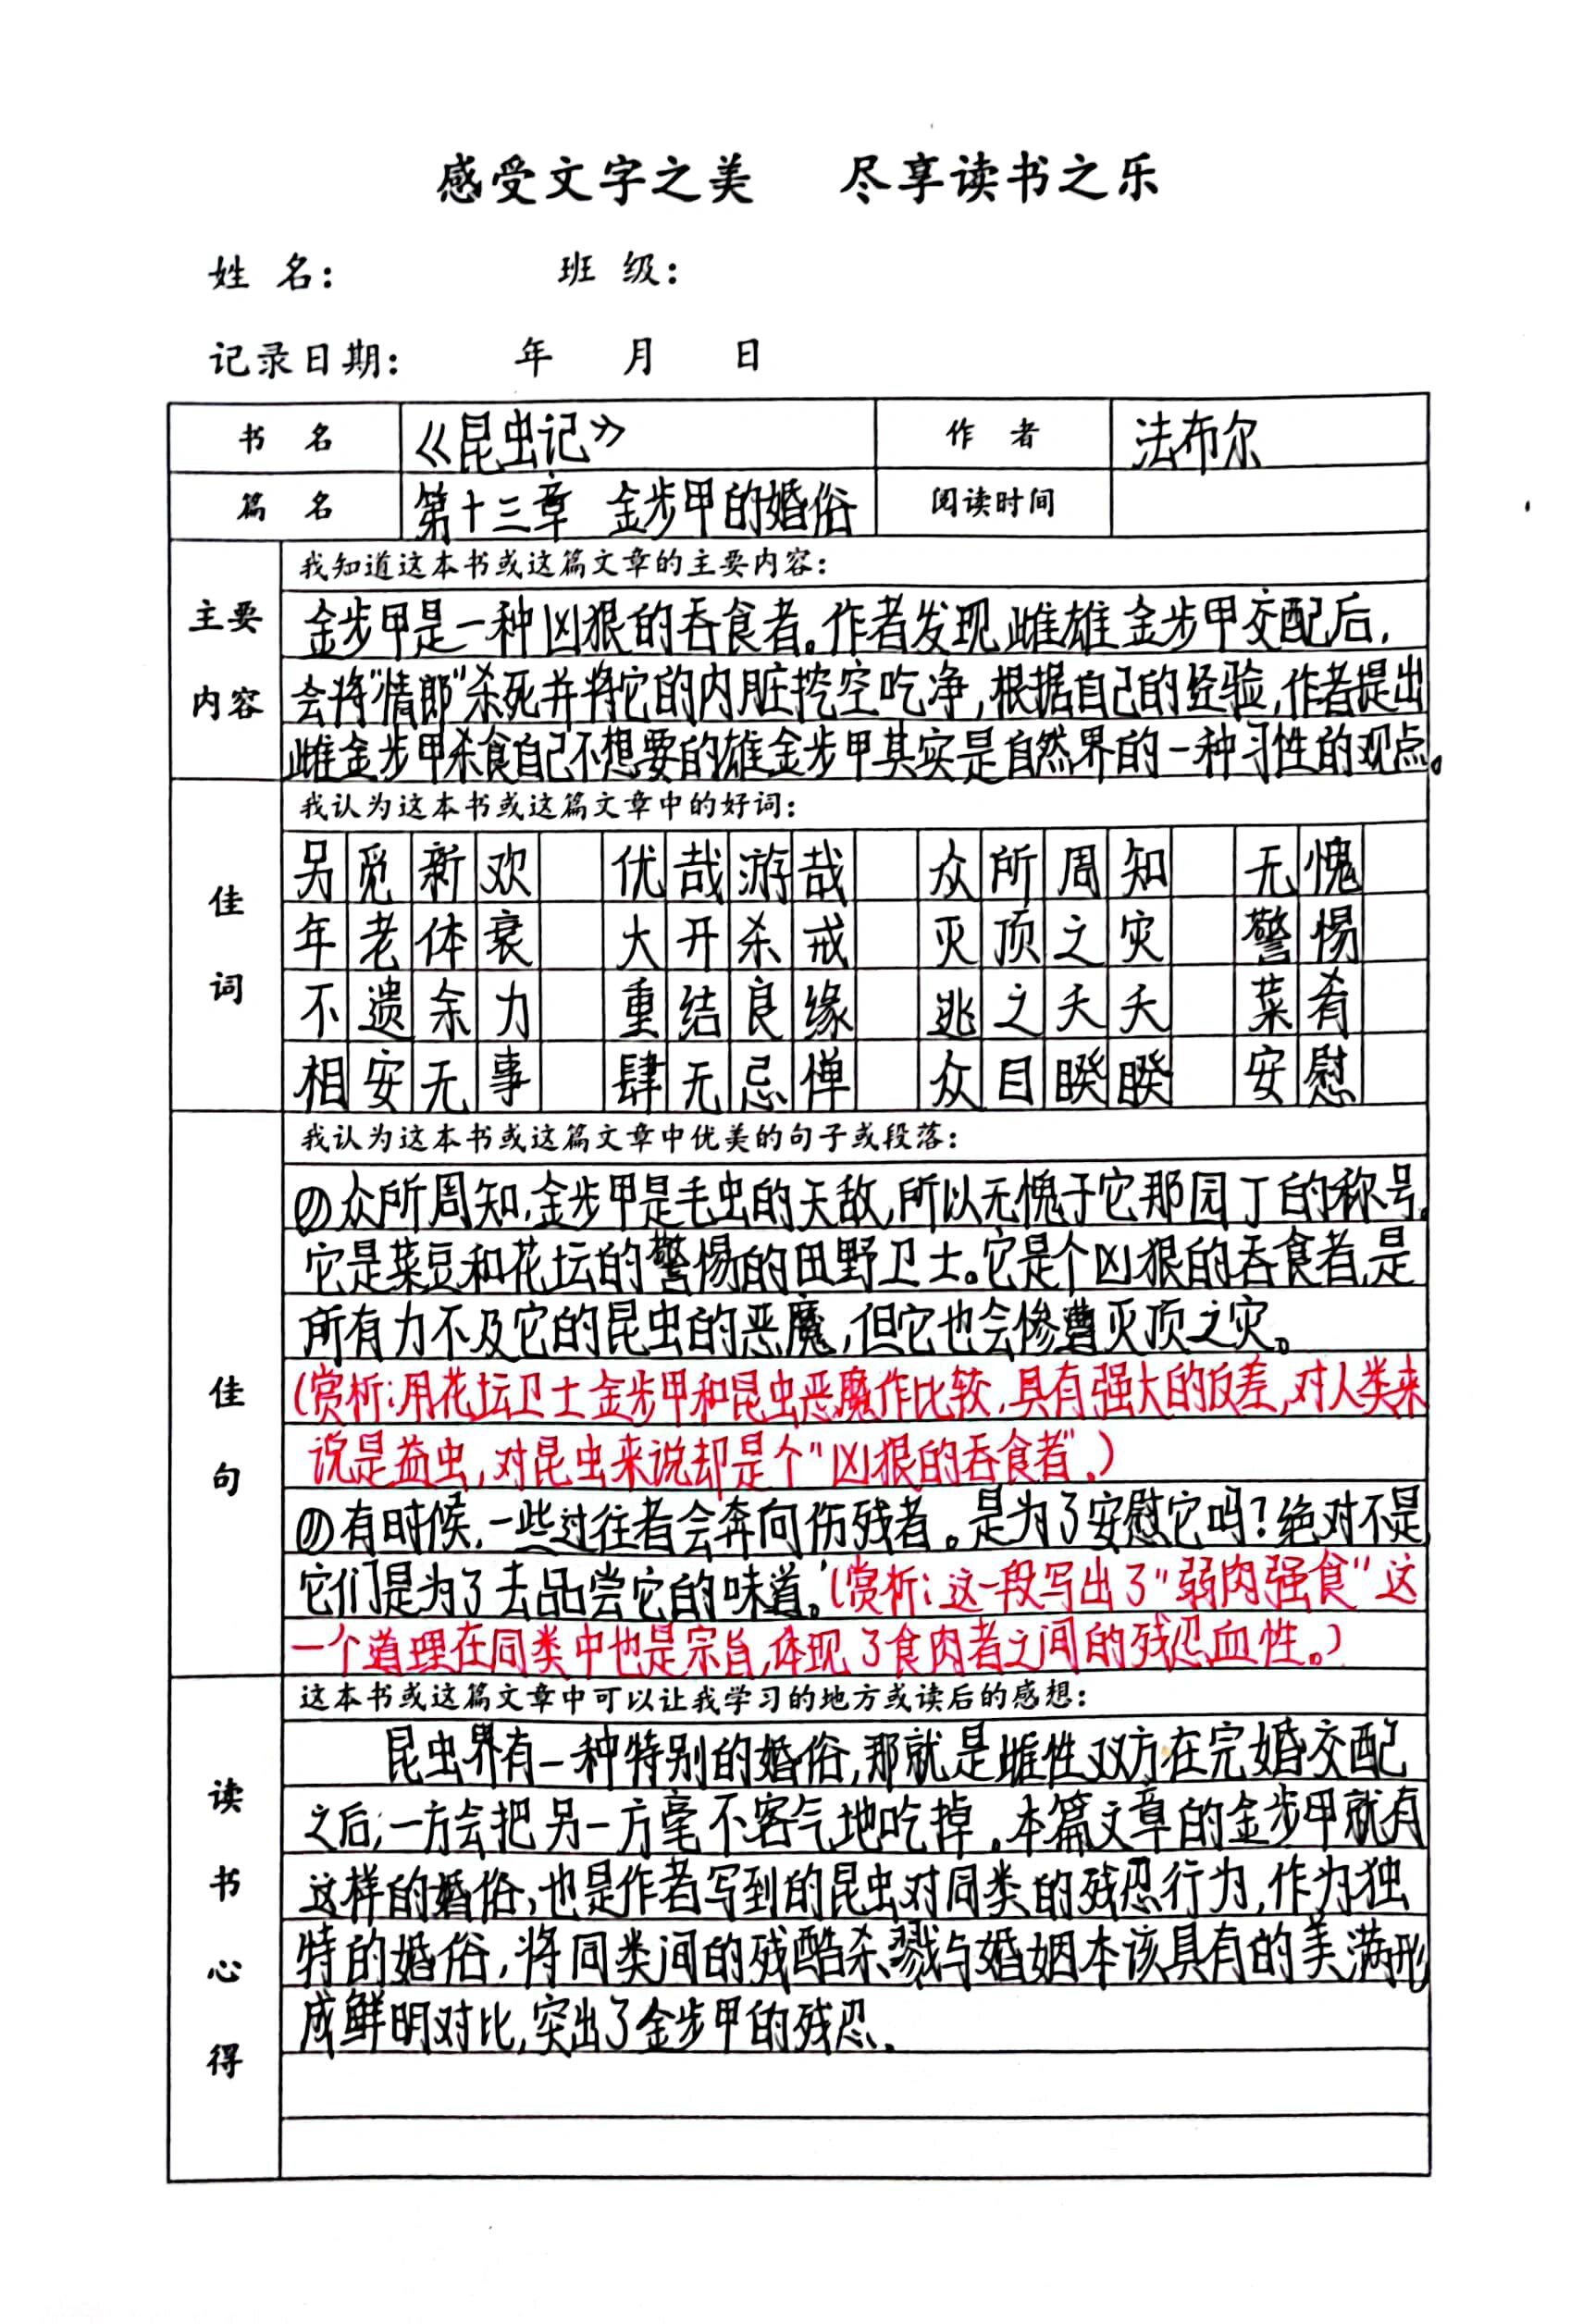 感受文字之美 尽享读书之乐
姓 名： 班 级：
记录日期： 年 月 日
书 名 《昆虫记》 作 者 法布尔
篇 名 第十三章 金步甲的婚俗 阅读时间
主要内容
我知道这本书或这篇文章的主要内容：
金步甲是一种凶狠的吞食者。作者发现雌雄金步甲交配后，
会将“情郎”杀死并将它的内脏挖空吃净，根据自己的经验，作者提出
雌金步甲杀食自己不想要的雄金步甲其实是自然界的一种习性的观点。
佳词
我认为这本书或这篇文章中的好词：
另觅新欢 优哉游哉 众所周知 无愧
年老体衰 大开杀戒 灭顶之灾 警惕
不遗余力 重结良缘 逃之夭夭 菜肴
相安无事 肆无忌惮 众目睽睽 安慰
佳句
我认为这本书或这篇文章中优美的句子或段落：
①众所周知，金步甲是毛虫的天敌，所以无愧于它那园丁的称号。
它是菜豆和花坛的警惕的田野卫士。它是个凶狠的吞食者，是
所有力不及它的昆虫的恶魔，但它也会惨遭灭顶之灾。
（赏析：用花坛卫士金步甲和昆虫恶魔作比较，具有强大的反差，对人类来
说是益虫，对昆虫来说却是个“凶狠的吞食者”。）
②有时候，一些过往者会奔向伤残者。是为了安慰它吗？绝对不是，
它们是为了去品尝它的味道。（赏析：这一段写出了“弱肉强食”这
一个道理在同类中也是宗旨，体现了食肉者之间的残忍血性。）
读书心得
这本书或这篇文章中可以让我学习的地方或读后的感想：
昆虫界有一种特别的婚俗，那就是雌性双方在完婚交配
之后，一方会把另一方毫不客气地吃掉。本篇文章的金步甲就有
这样的婚俗，也是作者写到的昆虫对同类的残忍行为，作为独
特的婚俗，将同类间的残酷杀戮与婚姻本该具有的美满形
成鲜明对比，突出了金步甲的残忍。